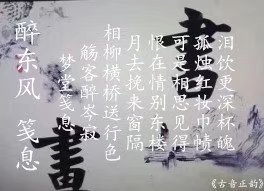 醉东风 笺息
梦堂笺息
觞客醉岑寂
相柳横桥送行色
月去挽来窗隔
恨在情别东楼
可是相思见得
孤烛红妆巾帻
泪饮更深杯魄
書
畫
《古音正韵》